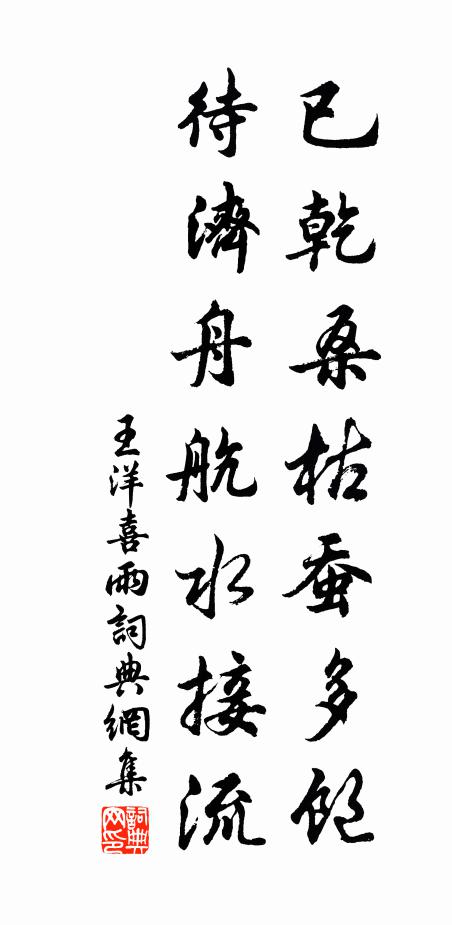 已乾桑枯蚕多飽
待濟舟航水接流
王洋喜雨詞典網集
詞典网印